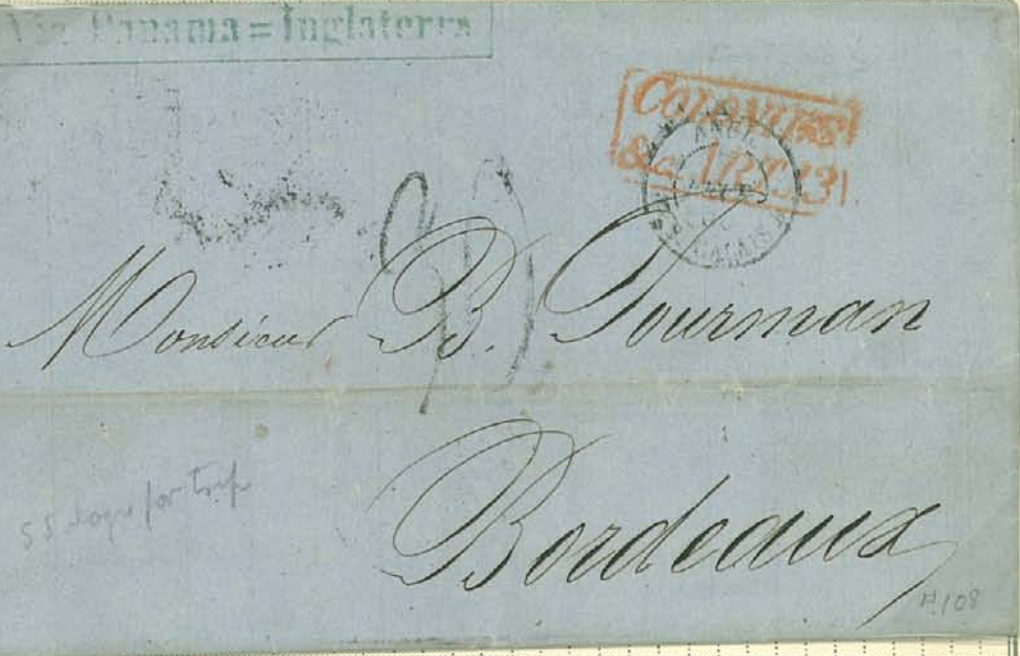 Via Panama=Inglaterra
COLONIES
&c. ART. 13
ANGL.
CALAIS
Monsieur B. Tourman
Bordeaux
55 days for trip
108